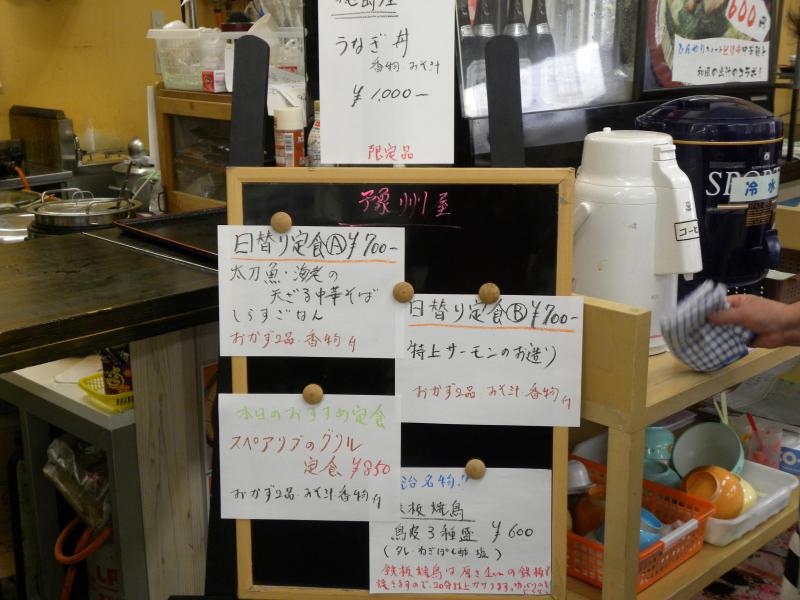 うなぎ丼
香物 みそ汁
¥1,000-
限定品
600円
コーヒ
SPOR
冷水
豫州屋
日替り定食Ⓐ¥700-
太刀魚・海老の
天ざる中華そば
しらすごはん
おかず2品・香物付
日替り定食Ⓑ¥700-
特上サーモンのお造り
おかず2品 みそ汁 香物付
本日のおすすめ定食
スペアリブのグリル
定食 ¥850
おかず2品・みそ汁 香物付
治名物!!
鉄板焼鳥
鳥皮3種盛 ¥600
(タレ・ねぎぽん酢 塩)
鉄板焼鳥は厚さ1cmの鉄板で
焼きますので、20分以上かかります。